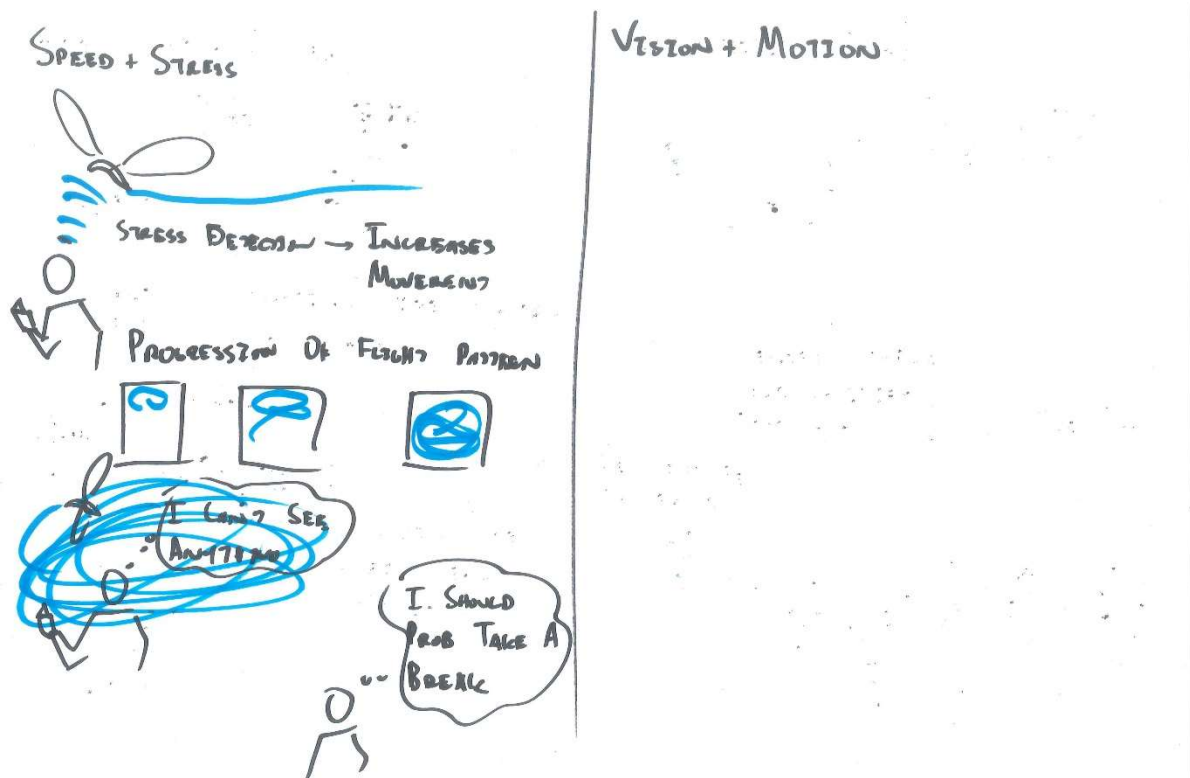 SPEED + STRESS
STRESS DETECTION → INCREASES
MOVEMENT
PROGRESSION OF FLIGHT PATTERN
I CAN'T SEE
ANYTHING
I SHOULD
PROB TAKE A
BREAK
VISION + MOTION